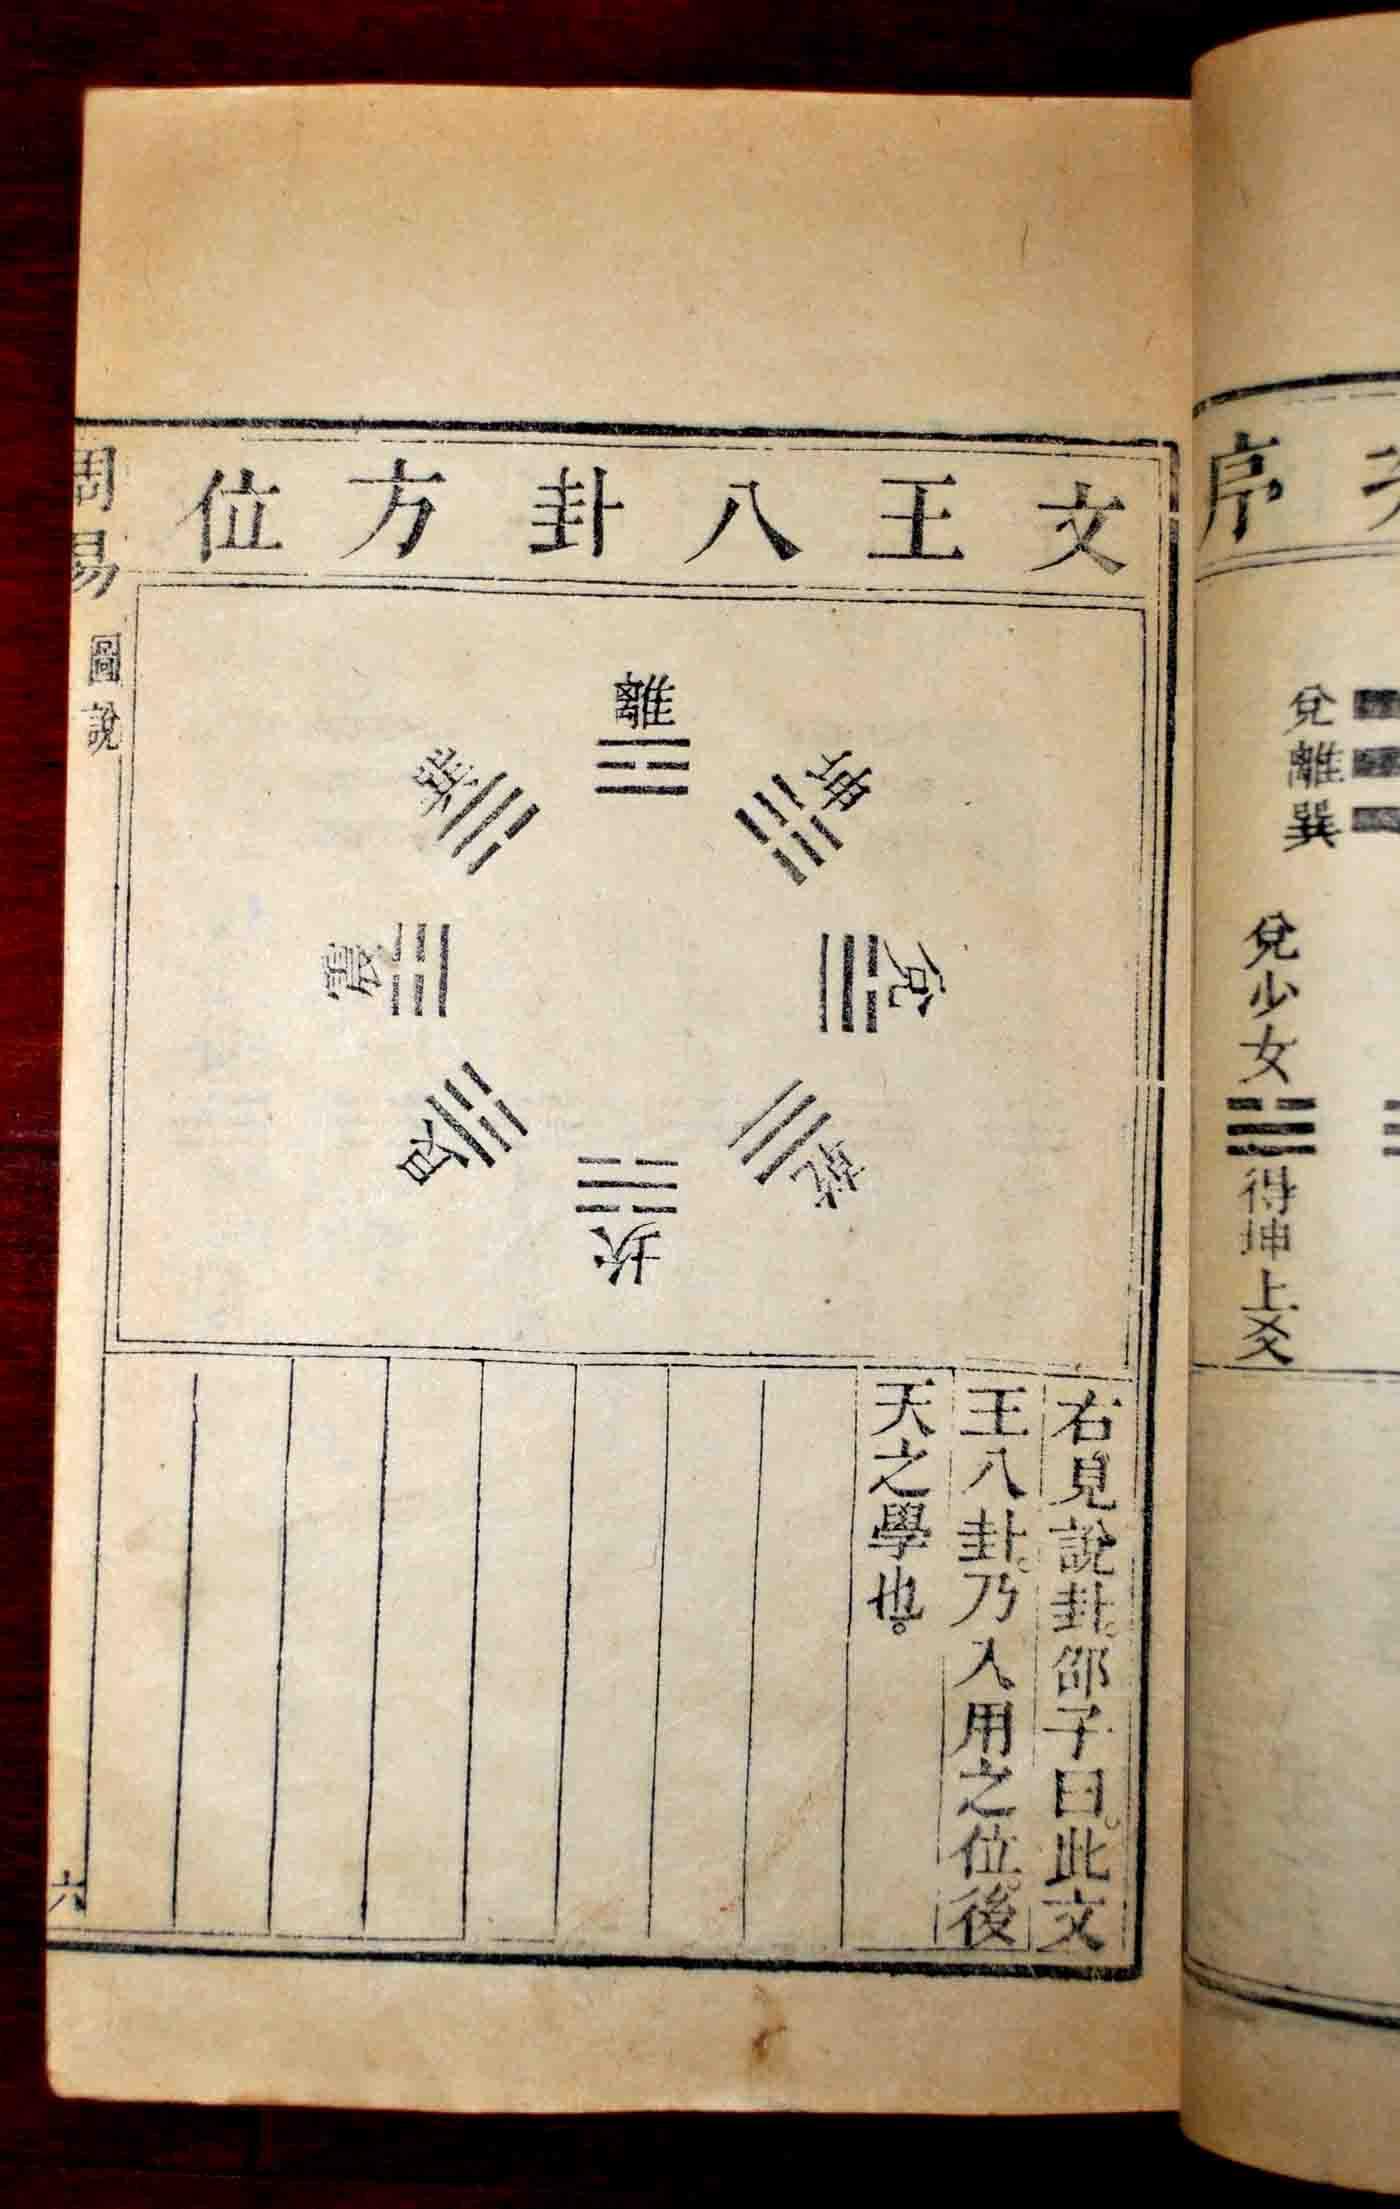 序
兌離巽
兌少女得坤上爻
文王八卦方位
離
坤
兌
乾
坎
艮
震
巽
右見說卦。邵子曰。此文
王八卦。乃入用之位。後
天之學也。
周易 圖說
六